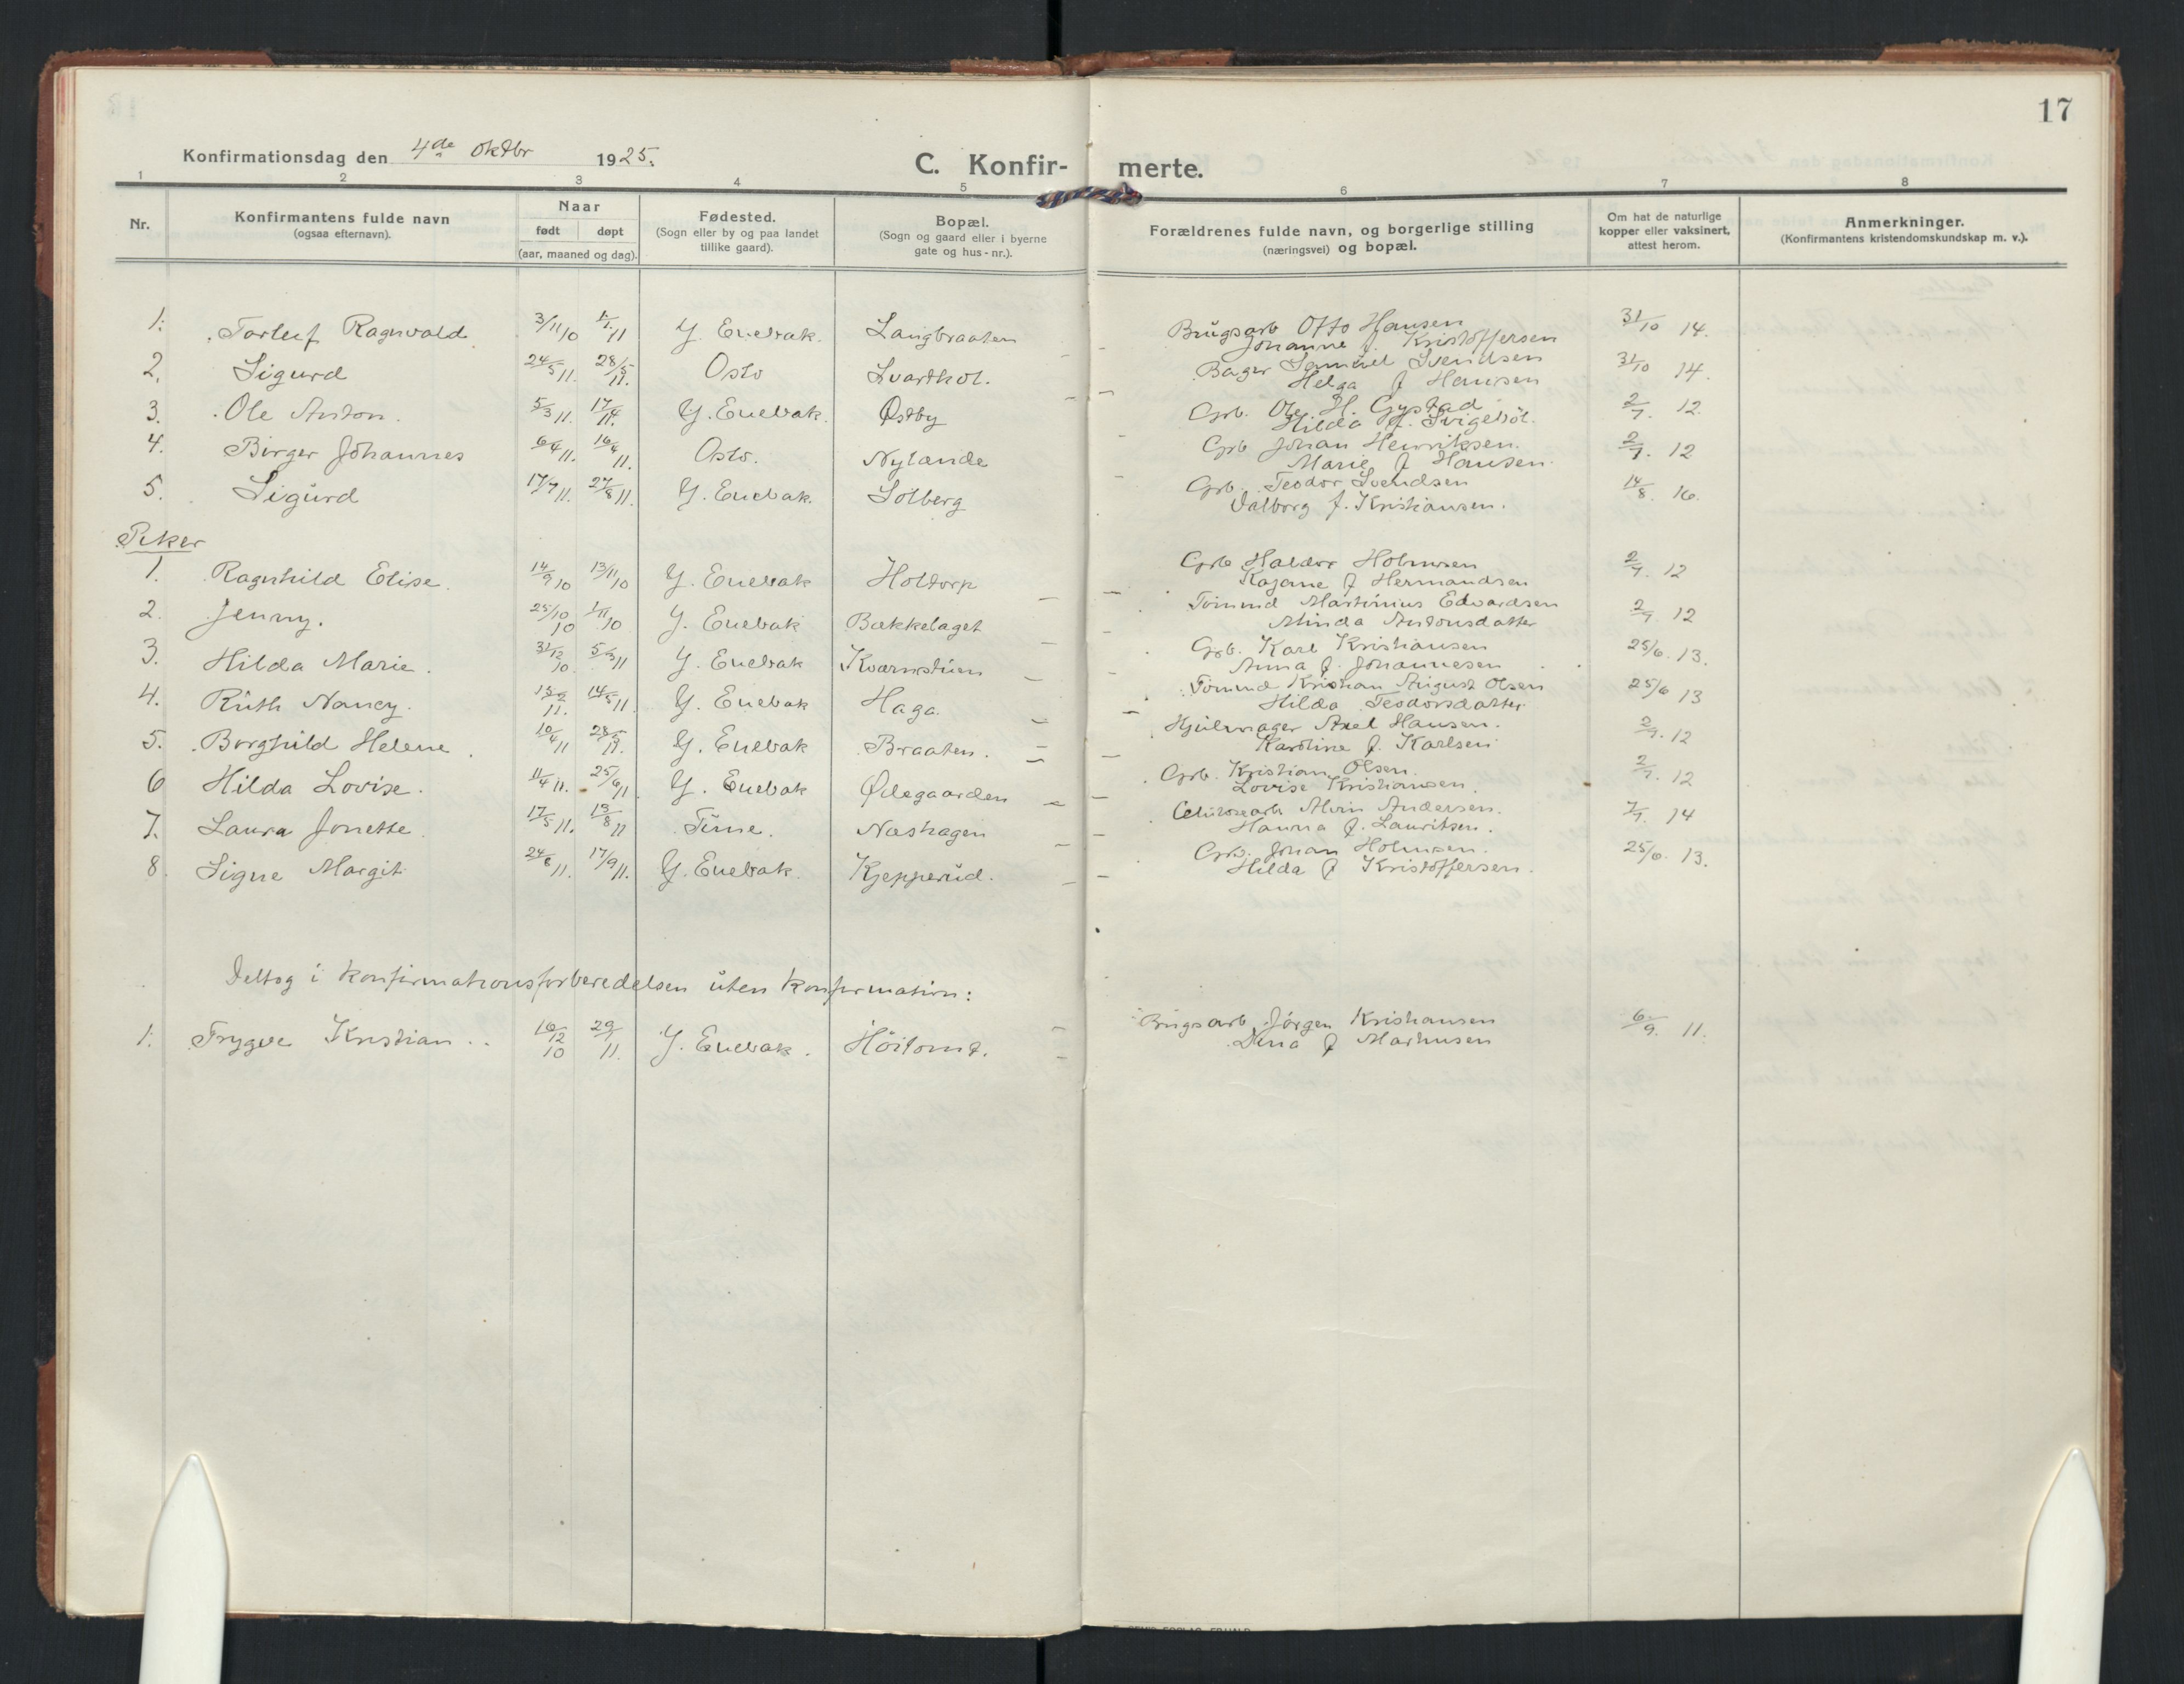 17
Konfirmationsdag den 4de oktbr 1925.
C. Konfir- merte.
1 2 3 4 5 6 7 8
Nr.
Konfirmantens fulde navn
(ogsaa efternavn).
Naar
født døpt
(aar, maaned og dag).
Fødested.
(Sogn eller by og paa landet
tillike gaard).
Bopæl.
(Sogn og gaard eller i byerne
gate og hus-nr.).
Forældrenes fulde navn, og borgerlige stilling
(næringsvei) og bopæl.
Om hat de naturlige
kopper eller vaksinert,
attest herom.
Anmerkninger.
(Konfirmantens kristendomskundskap m. v.).
1. Torleif Ragnvald 3/11 10 1/1 11 Y. Enebak. Langbraaten Brugsarb Otto Hansen 31/10 14.
Johanne f. Kristoffersen
2. Sigurd 24/5 11. 28/5 11. Oslo Svarthol. Bager Samuel Svendsen 31/10 14.
Helga f Hansen
3. Ole Anton. 5/3 11. 17/4 11. Y. Enebak. Østby Grb. Ole H. Gystad 2/7. 12.
Hilda f.
4. Birger Johannes 6/4 11. 16/4 11. Oslo. Nylande Grb Johan Henriksen. 2/7. 12
Marie f Hansen.
5. Sigurd 17/7 11. 27/8 11. Y. Enebak. Solberg Grb. Teodor Svendsen 14/8. 16.
Valborg f. Kristiansen.
Piker
1. Ragnhild Elise. 14/9 10 13/11 10 Y. Enebak Holtorp Grb Haldor Holmsen 2/7. 12
Kajane f Hermandsen
2. Jenny. 25/10 10 1/11 10 Y. Enebak Bækkelaget Tømmd Martinius Edvardsen 2/7. 12
Alinda Antonsdatter
3. Hilda Marie. 31/12 10. 5/3 11 Y. Enebak Kværnstuen Grb. Karl Kristiansen 25/6. 13.
Anna f. Johannesen
4. Ruth Nancy. 15/2 11. 14/5 11. Y. Enebak Haga Tømmd Kristian August Olsen 25/6 13
Hilda Teodorsdatter
5. Borghild Helene. 10/4 11 28/5 11. Y. Enebak Braaten. Hjulmager Axel Hansen. 2/7. 12
Karoline f. Karlsen
6 Hilda Lovise. 11/4 11. 25/6 11 Y. Enebak Ødegaarden Grb. Kristian Olsen. 2/7. 12
Lovise Kristiansen.
7. Laura Jonette. 17/5 11. 13/8 11 Tune. Næshagen Celulosearb Alvin Andersen. 7/7. 14
Hanna f. Lauritsen.
8. Signe Margit 24/8 11. 17/9 11. Y. Enebak. Kjepperud. Grb. Johan Holmsen. 25/6. 13.
Hilda f Kristoffersen.
Deltog i konfirmationsforberedelsen uten konfirmation:
1. Trygve Kristian.. 16/12 10 29/1 11. Y. Enebak. Høitomt. Brugsarb. Jørgen Kristiansen 6/9. 11.
Dina f Martinsen